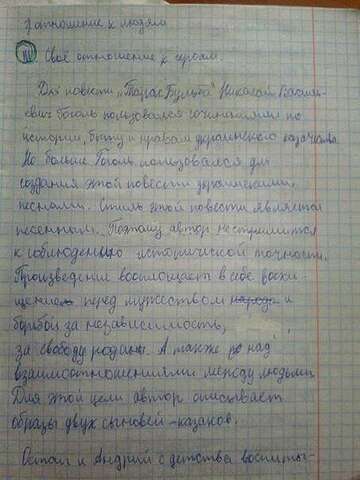 отношение к людям
III Своё отношение к героям.
Для повести „Тарас Бульба" Николай Василь-
евич Гоголь пользовался сочинениями по
истории, быту и нравам украинского казачества.
Но больше Гоголь использовался для
создания этой повести украинскими
песнями. Стиль этой повести является
песенным. Поэтому автор не стремится
к соблюдению исторической точности.
Произведение воплощает в себе восхи-
щение перед мужеством и
борьбой за независимость,
за свободу родины. А также над
взаимоотношениями между людьми
Для этой цели автор описывает
образы двух сыновей-казаков.
Остап и Андрий с детства воспиты-